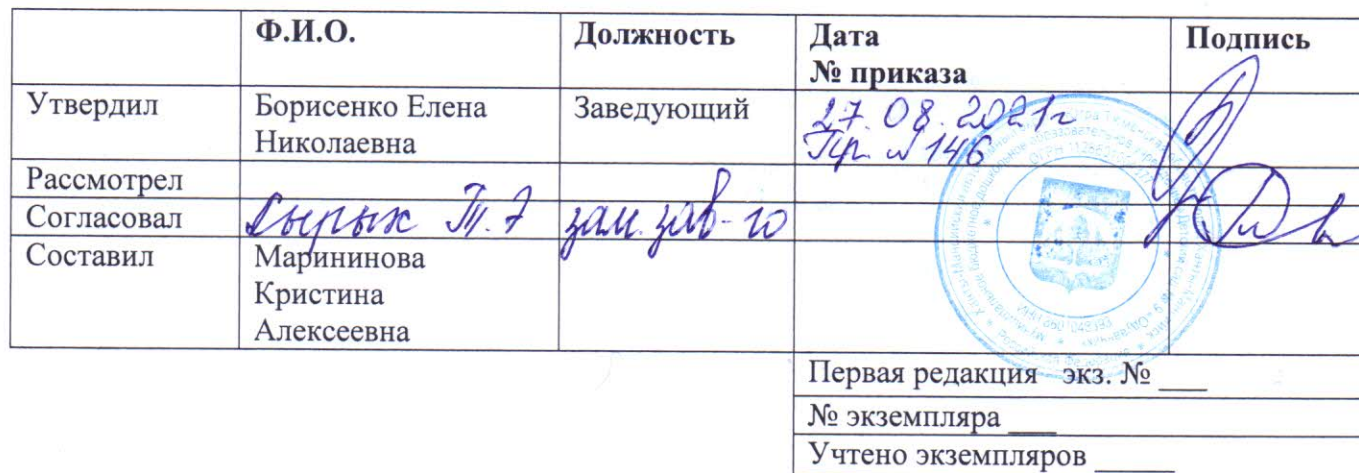 Ф.И.О. Должность Дата Подпись
№ приказа
Утвердил Борисенко Елена Заведующий 27.08.2021г
Николаевна Пр. № 146
Рассмотрел
Согласовал Сырых Т.Э зам. зав-го
Составил Марининова
Кристина
Алексеевна
Первая редакция экз. № ___
№ экземпляра ___
Учтено экземпляров _____